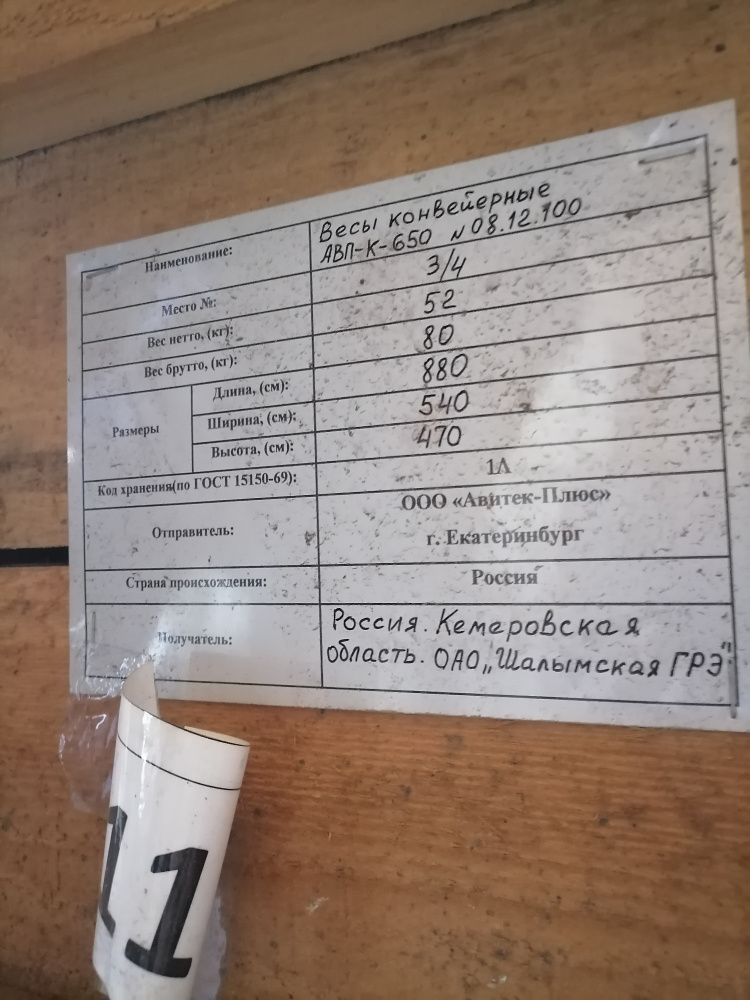 Наименование: Весы конвейерные
АВП-К-650 N 08.12.100
Место №: 3/4
Вес нетто, (кг): 52
Вес брутто, (кг): 80
Размеры Длина, (см): 880
Ширина, (см): 540
Высота, (см): 470
Код хранения(по ГОСТ 15150-69): 1Л
Отправитель: ООО «Авитек-Плюс»
г. Екатеринбург
Страна происхождения: Россия
Получатель: Россия. Кемеровская
область. ОАО „Шалымская ГРЭ"
11